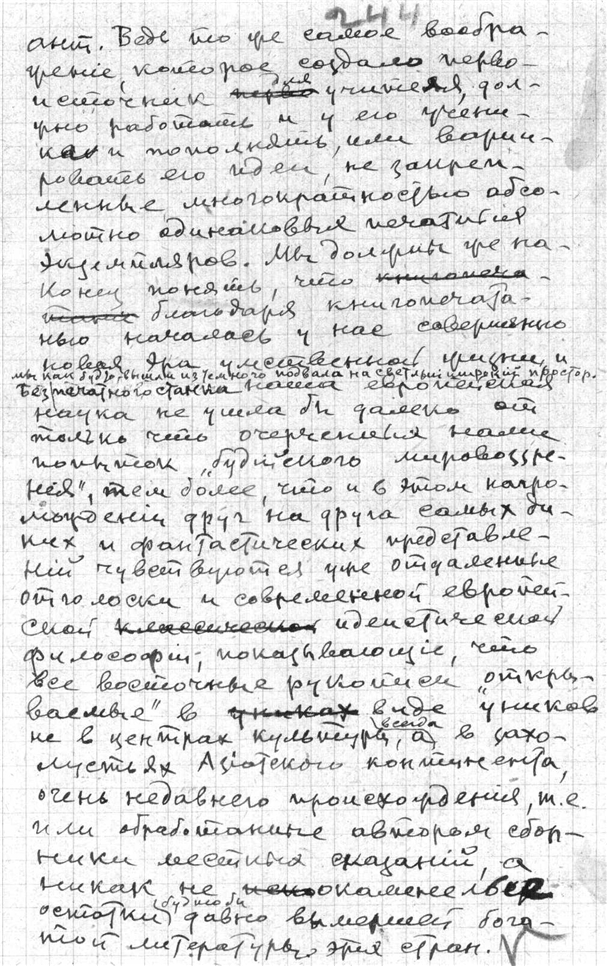 244
ант. Ведь то же самое вообра-
женіе, которое создало перво-
источник для учителя, дол-
жно работать и у его учени-
ка и пополнять, или варьи-
ровать его идеи, не закреп-
ленные многократностью абсо-
лютно одинаковых печатных
экземпляров. Мы должны же на-
конец понять, что книгопеча-
благодаря книгопечата-
нью началась у нас совершенно
новая эра умственной жизни, и
мы как будто вышли из темного подвала на светлый широкий простор.
Без печатного станка наша европейская
наука не ушла бы далеко от
только что очерченных нами
попыток „будійского міровоззре-
ния", тем более, что и в этом нагро-
мождении друг на друга самых ди-
ких и фантастических представле-
ній чувствуются уже отдаленные
отголоски и современной европей-
ской классической идеистической
философіи, показывающіе, что
все восточные рукописи „откры-
ваемые" в униках виде уников
не в центрах культуры, а всегда в захо-
лустьях Азіатского континента,
очень недавнего происхождения, т.е.
или обработанные автором сбор-
ники местных сказаний, а
никак не окаменелые
остатки будто бы давно вымершей бога-
той литературы этих стран.